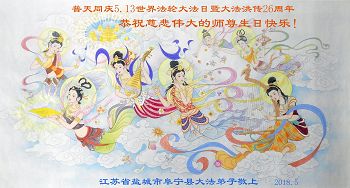 普天同庆5.13世界法轮大法日暨大法洪传26周年
恭祝慈悲伟大的师尊生日快乐！
江苏省盐城市阜宁县大法弟子敬上 2018.5